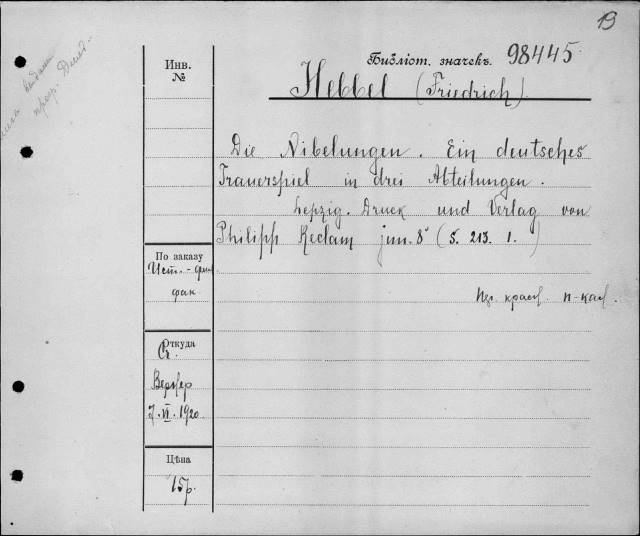 13
Библіот. значекъ 98445.
Инв.
№
Hebbel (Friedrich).
Die Nibelungen. Ein deutsches
Trauerspiel in drei Abteilungen.
Leipzig. Druck und Verlag von
Philipp Reclam jun. 8° (S. 213. 1.)
По заказу
Ист.-фил
фак
Откуда
Цѣна
15р.
7.VI.1920